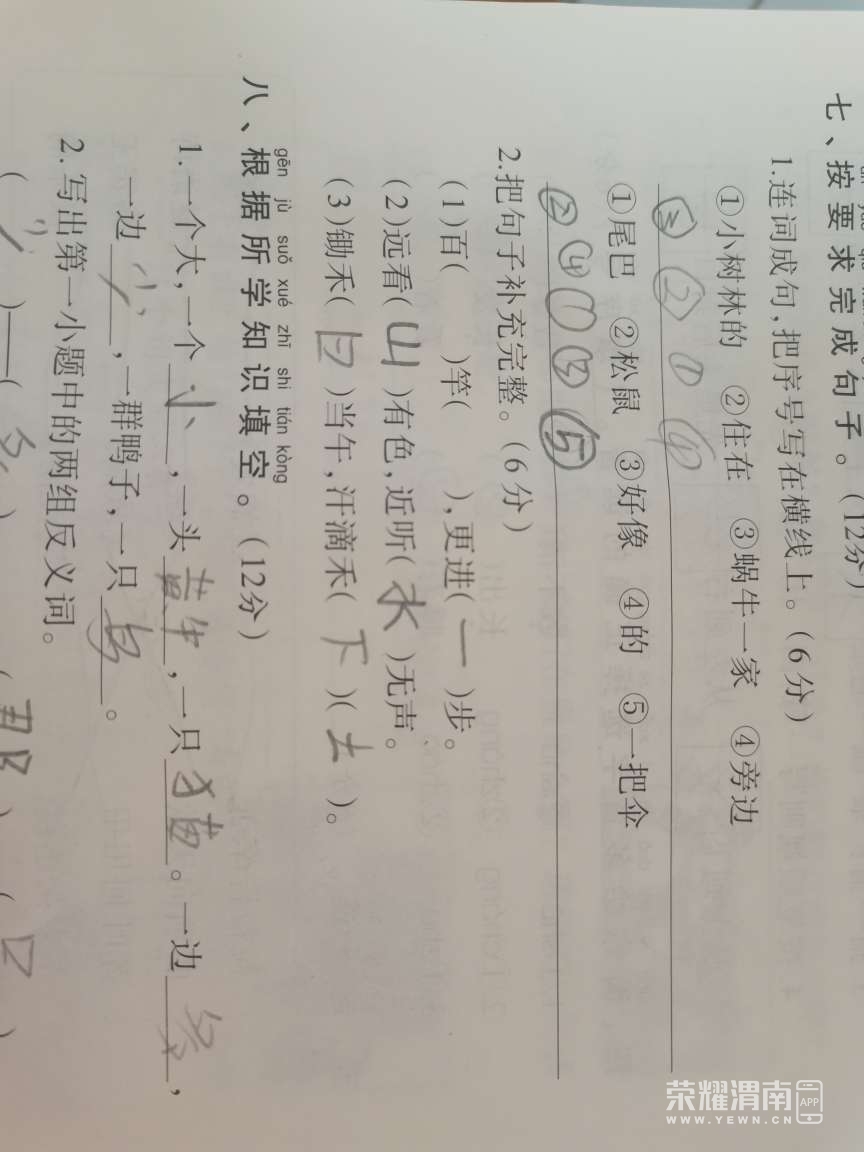 七、按要求完成句子。(12分)
1.连词成句,把序号写在横线上。(6分)
①小树林的 ②住在 ③蜗牛一家 ④旁边
③ ② ① ④
①尾巴 ②松鼠 ③好像 ④的 ⑤一把伞
② ④ ① ③ ⑤
2.把句子补充完整。(6分)
(1)百( )竿( ),更进( 一 )步。
(2)远看( 山 )有色,近听( 水 )无声。
(3)锄禾( 日 )当午,汗滴禾( 下 )( 土 )。
gēn jù suǒ xué zhī shi tián kòng
八、根据所学知识填空。(12分)
1.一个大,一个小,一头黄牛,一只猫。一边多,
一边少,一群鸭子,一只鸟。
2.写出第一小题中的两组反义词。
( 少 )——( 多 ) ( ) ( )
荣耀渭南 APP
WWW.YEWN.CN